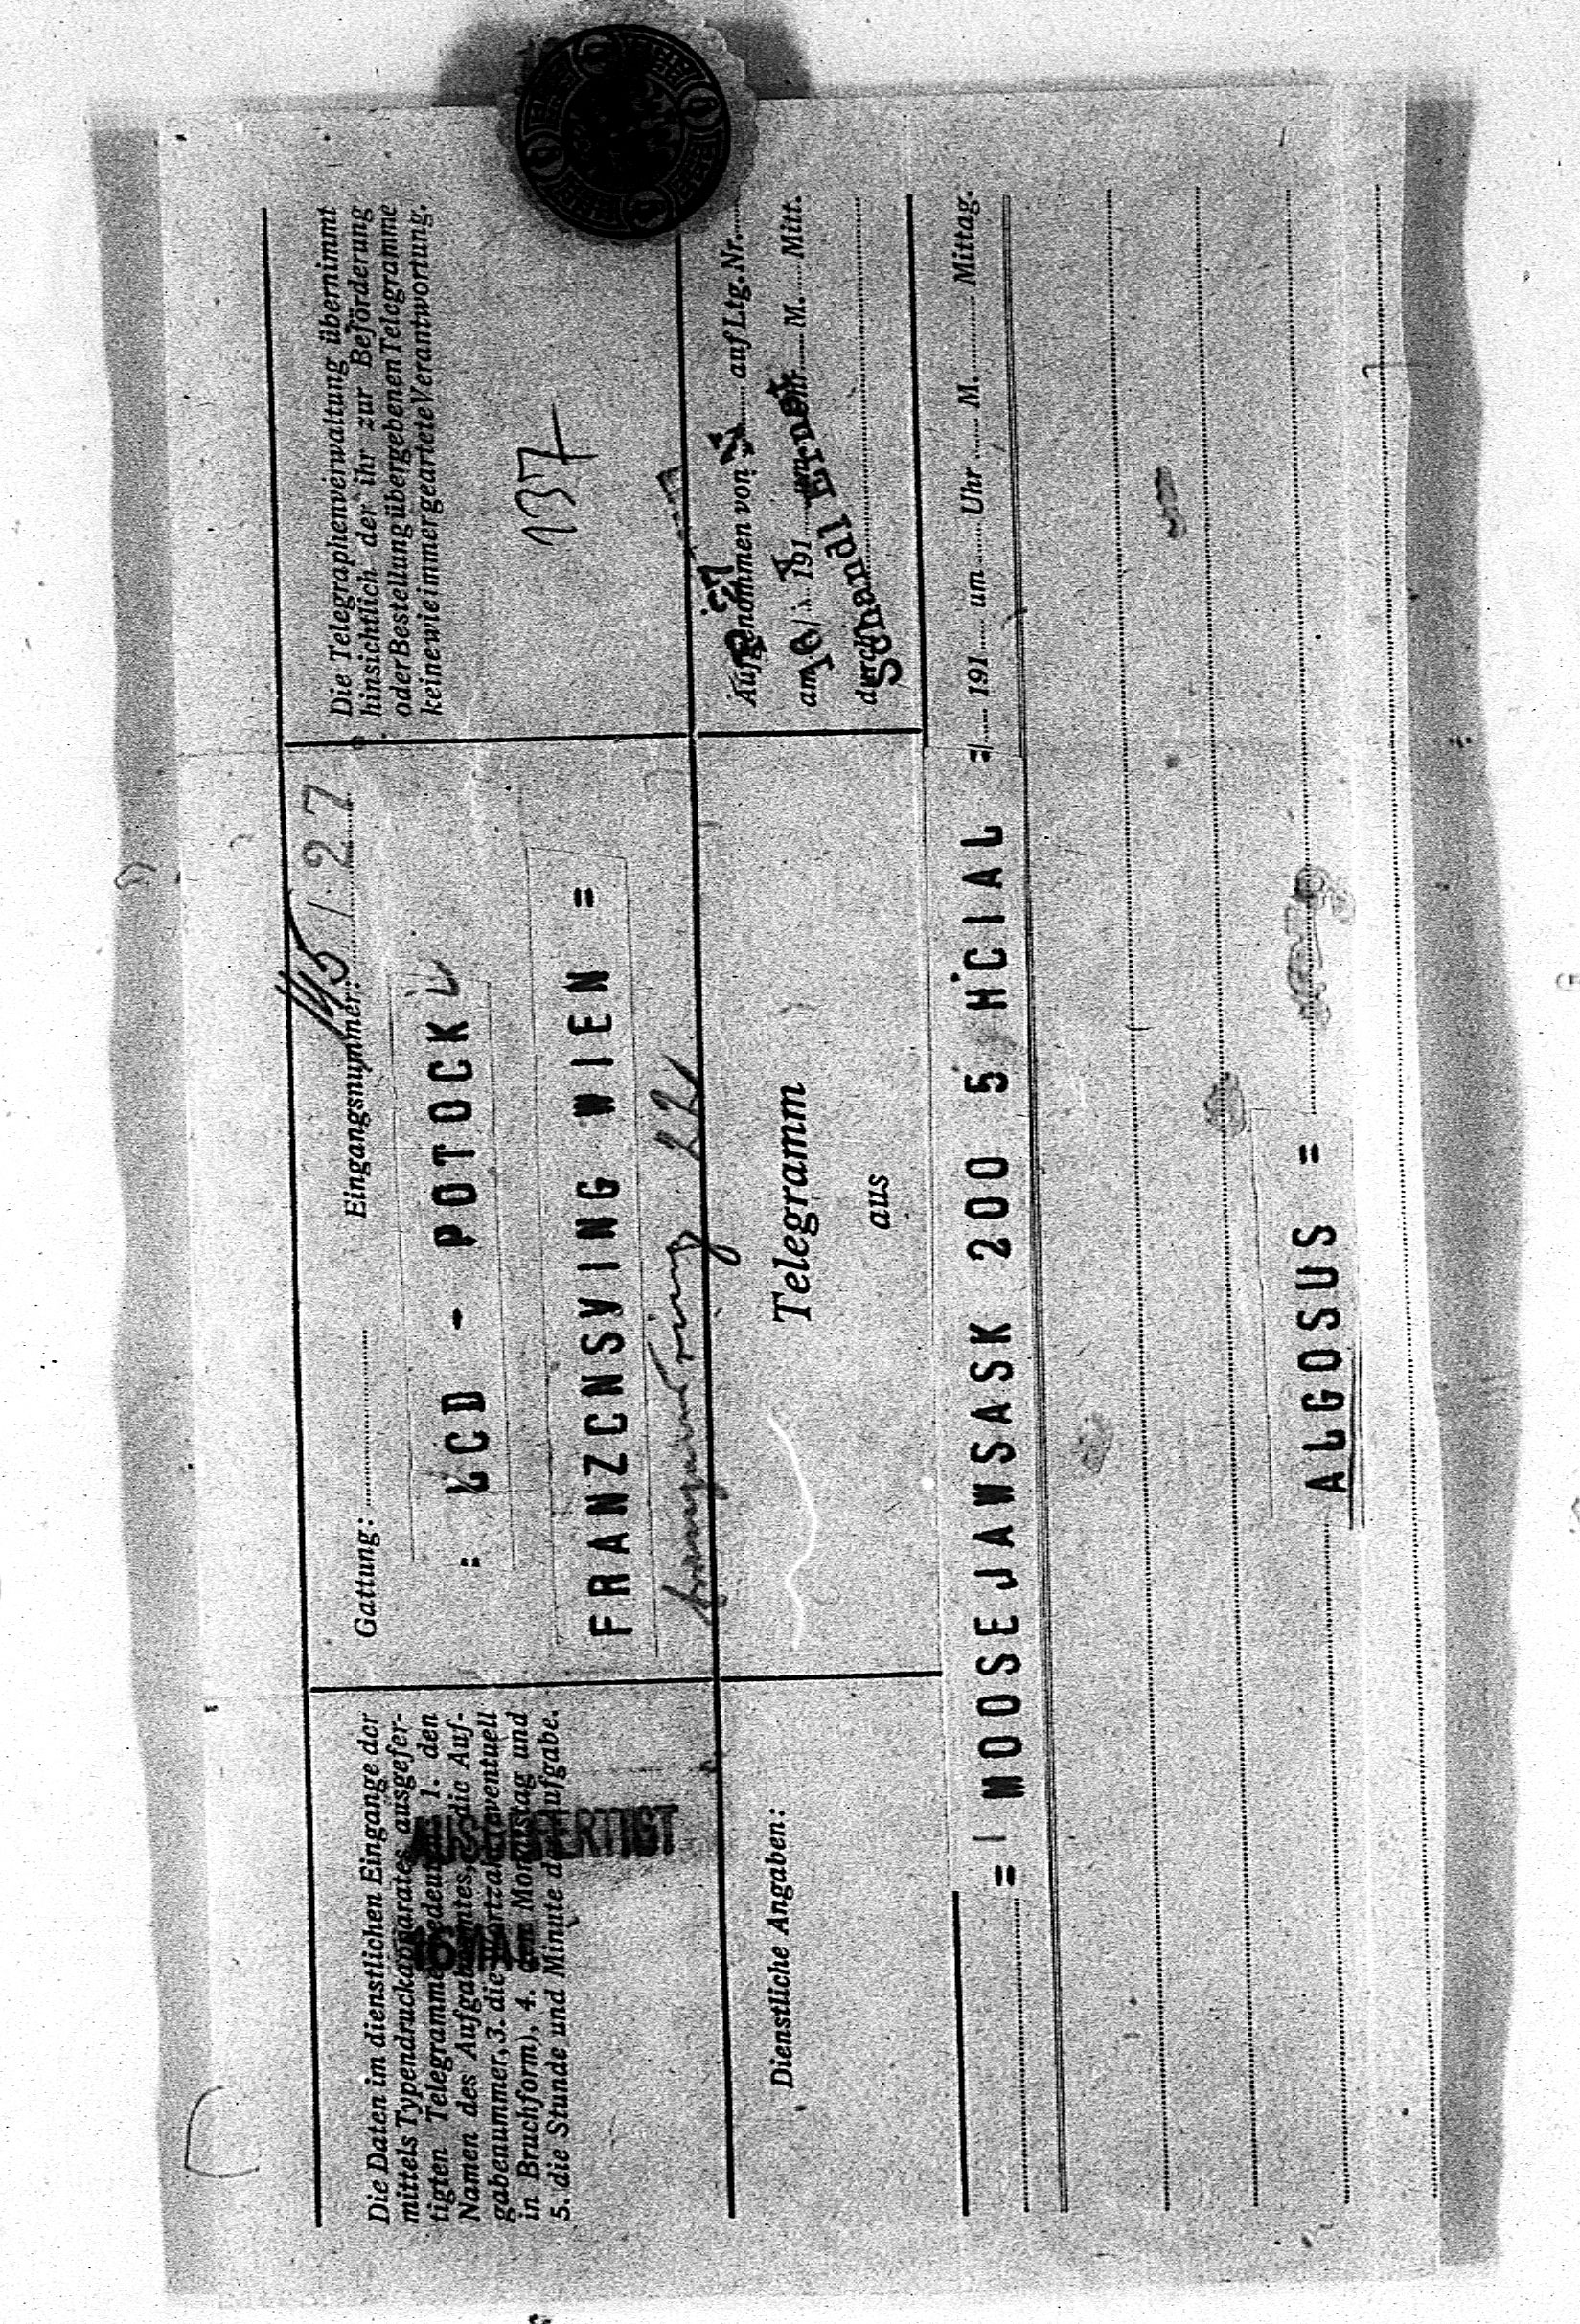 Die Daten im dienstlichen Eingange der
mittels Typendruckapparates ausgefer-
tigten Telegramme bedeuten: 1. den
Namen des Aufgabeamtes, die Auf-
gabenummer, 3. die Wortzahl (eventuell
in Bruchform), 4. den Monatstag und
5. die Stunde und Minute der Aufgabe.
AUSGEFERTIGT
16 MAI
Gattung:
Eingangsnummer: 27
= LCD - POTOCKI
FRANZCNSVING WIEN =
22
Die Telegraphenverwaltung übernimmt
hinsichtlich der ihr zur Beförderung
oder Bestellung übergebenen Telegramme
keine wie immer geartete Verantwortung.
137
Dienstliche Angaben:
Telegramm
aus
Aufgenommen von auf Ltg. Nr.
am 16/ 191 um Uhr M. Mitt.
durch
Schandl Ernst
= | MOOSEJAWSASK 200 5 HCIAL =
/ 191 um Uhr M. Mittag.
ALGOSUS =